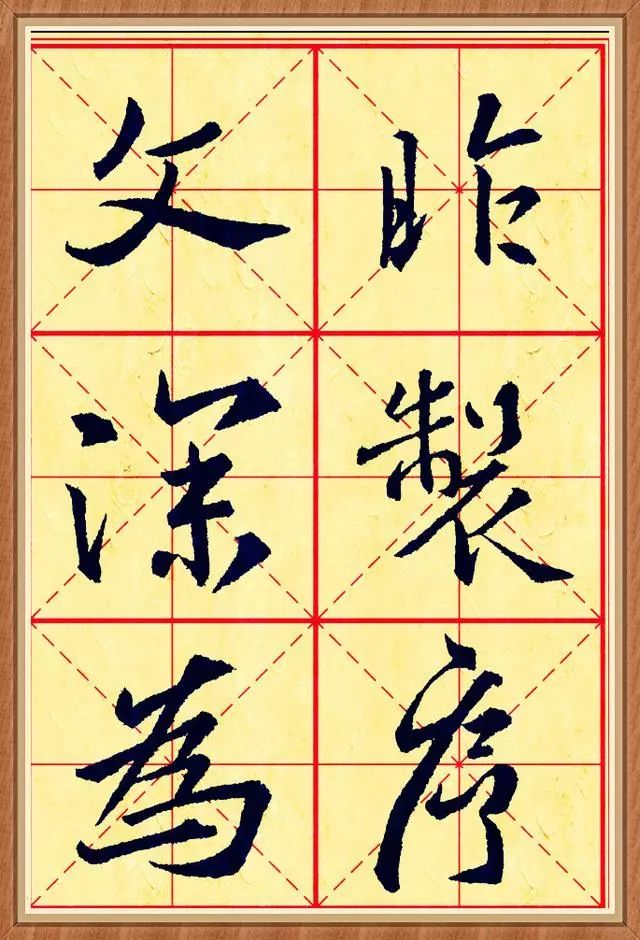 昨製序
文深為